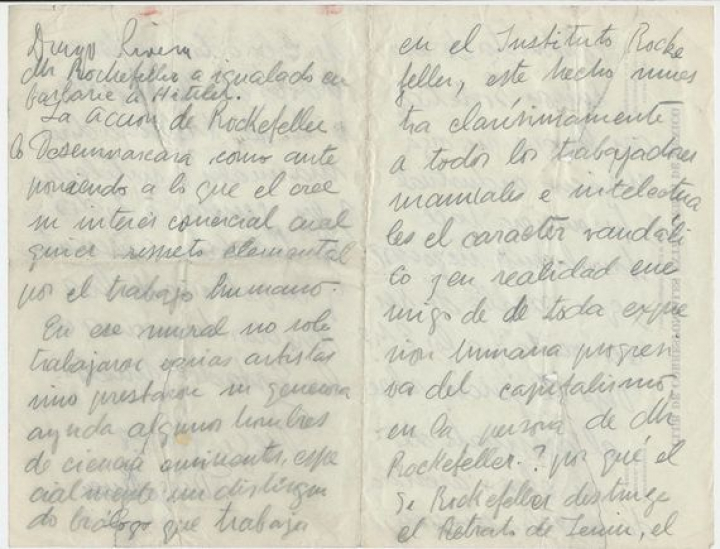 Diego Rivera
Mr Rockefeller a igualado en
barbarie a Hitler.
La acción de Rockefeller
lo Desenmascara como ante
poniendo a lo que el cree
su interés comercial cual
quier respeto elemental
por el trabajo humano.
En ese mural no solo
trabajaron varios artistas
sino prestaron su generosa
ayuda algunos hombres
de ciencia eminents, espe
cialmente un distingui
do biólogo que trabaja
en el Instituto Rocke
feller, este hecho mues
tra clarísimamente
a todos los trabajadores
manuales e intelectua
les el caracter vandáli
co y en realidad ene
migo de de toda expre
sion humana progresi
va del capitalismo
en la persona de Mr
Rockefeller. ? por qué el
Sr Rockefeller destruye
el Retrato de Lenin, el